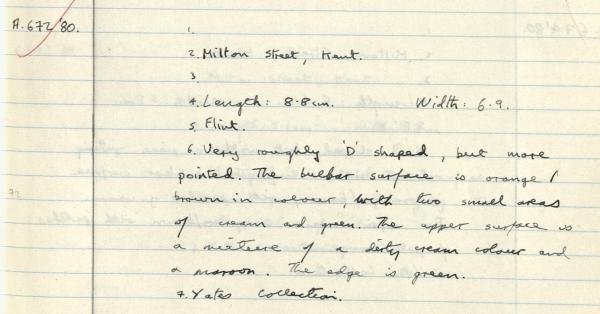 A.672'80.
1.
2. Milton Street, Kent.
3
4. Length: 8.8cm. Width: 6.9.
5. Flint.
6. Very roughly 'D' shaped, but more
pointed. The bulbar surface is orange/
brown in colour, with two small areas
of cream and green. The upper surface is
a mixture of a dirty cream colour and
a maroon. The edge is green.
7. Yates collection.
72